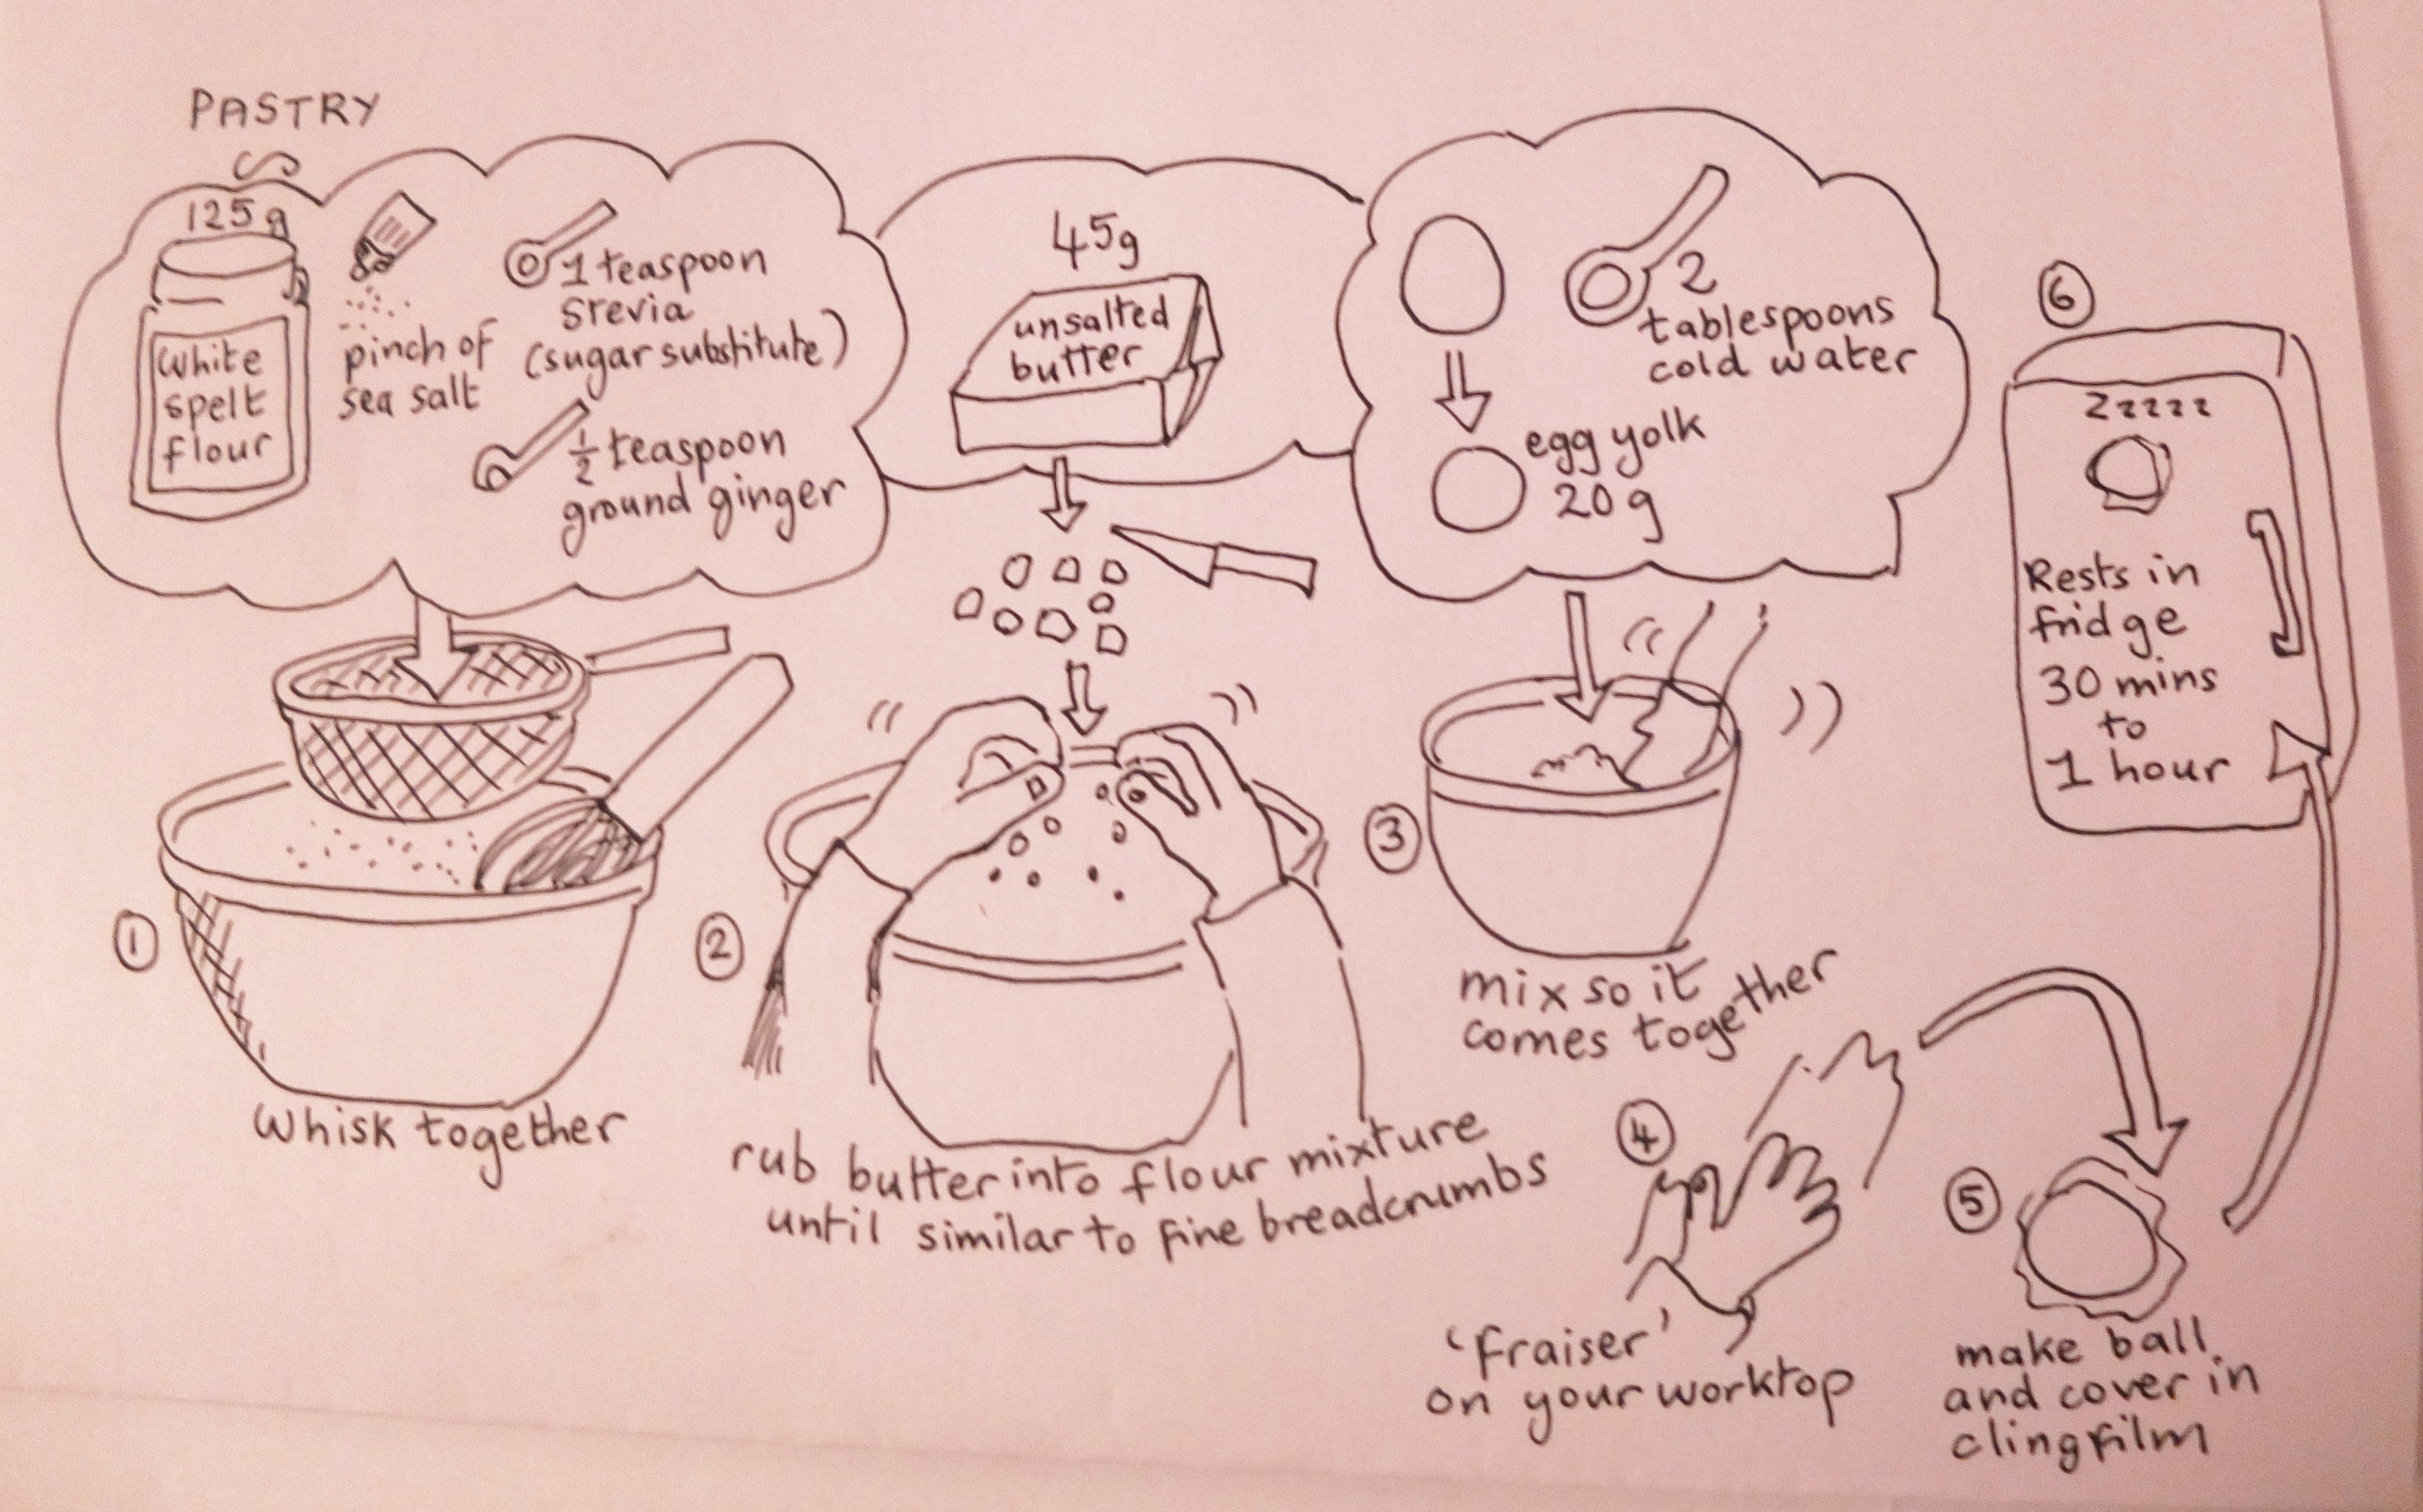 PASTRY
125g
White
spelt
flour
pinch of
sea salt
1 teaspoon
stevia
(sugar substitute)
1/2 teaspoon
ground ginger
1
Whisk together
45g
unsalted
butter
2
rub butter into flour mixture
until similar to fine breadcrumbs
2
tablespoons
cold water
egg yolk
20g
3
mix so it
comes together
4
'Fraiser'
on your worktop
5
make ball
and cover in
clingfilm
6
Zzzzz
Rests in
fridge
30 mins
to
1 hour